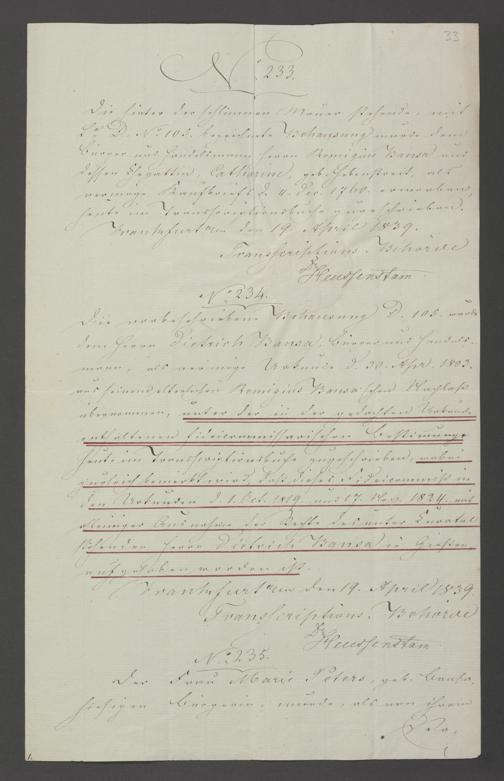 33
No. 233.
Die hinter der schlimmen Mauer stehende, mit
D. No. 105. bezeichnete Behausung wurde dem
Bürger und Handelsmann Herrn Remigius Bansa und
dessen Ehegattin, Catharine, geb. als
vermöge Kaufbriefs d. 4. Dec. 1760. erworben,
heute im Transscriptionsbuche zugeschrieben.
Frankfurt a/m den 19. April 1839.
Transcriptions-Behörde
Dr Heussenstam
No. 234.
Die vorbeschriebene Behausung D. 105. wurde
dem Herrn Dietrich Bansa, Bürger und Handels-
mann, als vermöge Urkunde d. 30. Apr. 1803.
aus seinem elterlichen Remigius Bansa'schen Nachlaß
übernommen, unter der in der gedachten Urkunde
enthaltenen fideicommissarischen Bestimmung,
heute im Transscriptionsbuche zugeschrieben, wobei
zugleich bemerkt wird, daß dieses Fideicommiß in
den Urkunden d. 1. Oct. 1819. und 17. Nov. 1824. mit
alleiniger Ausnahme der Rechte des unter Curatel
stehenden Herrn Dietrich Bansa in Gießen,
aufgehoben worden ist.
Frankfurt a/m den 19. April 1839
Transcriptions-Behörde
Dr Heussenstam
No. 235.
Der Frau Marie Peters, geb. Bansa,
hiesigen Bürgerin, wurde, als von ihrem